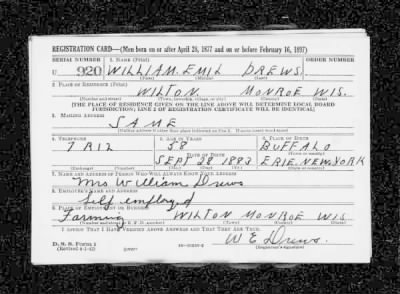 REGISTRATION CARD—(Men born on or after April 28, 1877 and on or before February 16, 1897)
SERIAL NUMBER 1. NAME (Print) ORDER NUMBER
U 920 WILLIAM EMIL DREWS
(First) (Middle) (Last)
2. PLACE OF RESIDENCE (Print)
WILTON MONROE WIS.
(Number and street) (Town, township, village, or city) (County) (State)
[THE PLACE OF RESIDENCE GIVEN ON THE LINE ABOVE WILL DETERMINE LOCAL BOARD
JURISDICTION; LINE 2 OF REGISTRATION CERTIFICATE WILL BE IDENTICAL]
3. MAILING ADDRESS
SAME
[Mailing address if other than place indicated on line 2. If same insert word same]
4. TELEPHONE 5. AGE IN YEARS 6. PLACE OF BIRTH
7 R12 58 BUFFALO
DATE OF BIRTH (Town or county)
SEPT 28 1883 ERIE. NEW YORK
(Exchange) (Number) (Mo.) (Day) (Yr.) (State or country)
7. NAME AND ADDRESS OF PERSON WHO WILL ALWAYS KNOW YOUR ADDRESS
Mrs William Drews
8. EMPLOYER'S NAME AND ADDRESS
Self employed
9. PLACE OF EMPLOYMENT OR BUSINESS
Farming WILTON MONROE WIS
(Number and street or R. F. D. number) (Town) (County) (State)
I AFFIRM THAT I HAVE VERIFIED ABOVE ANSWERS AND THAT THEY ARE TRUE.
W E Drews.
D. S. S. Form 1 (over)
(Registrant's signature)